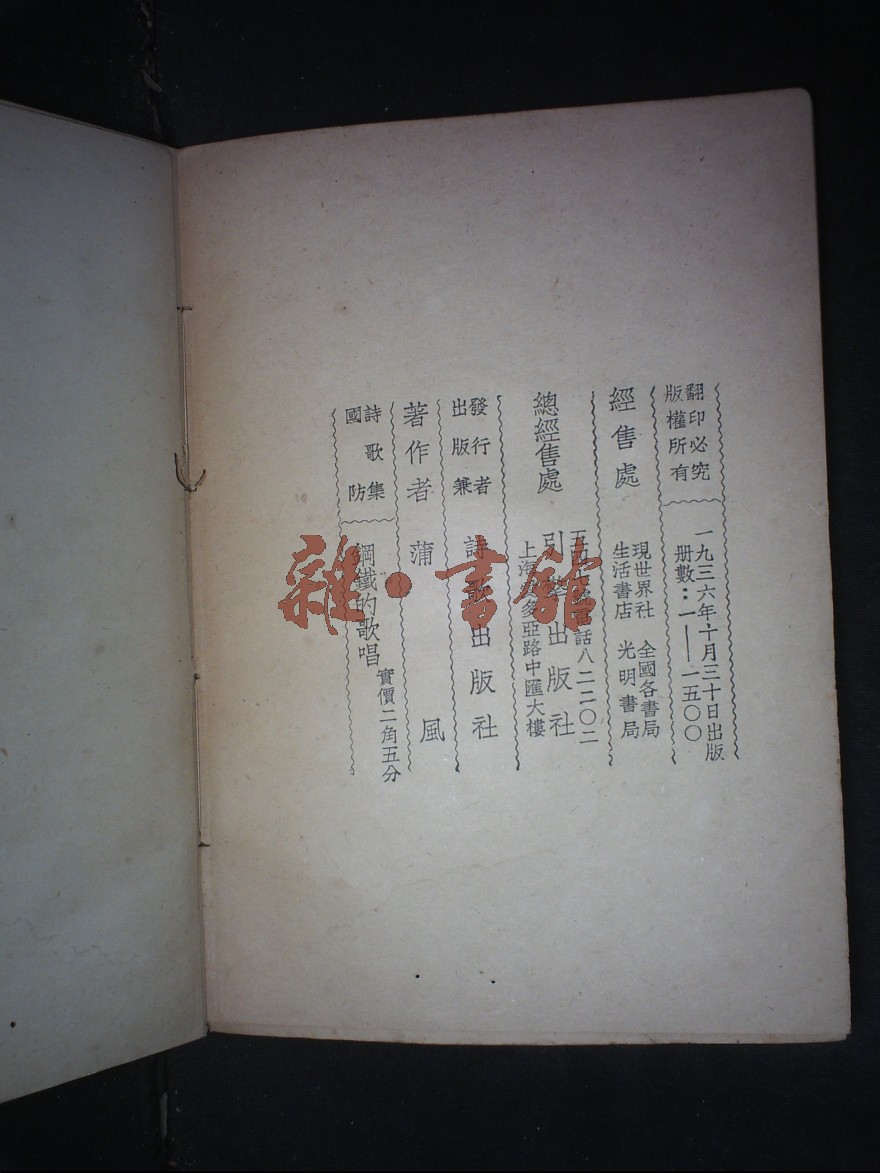 翻印必究
版權所有
一九三六年十月三十日出版
册數：一——一五〇〇
經售處
現世界社 全國各書局
生活書店 光明書局
總經售處
五四七號電話八二二〇二
引擎出版社
上海愛多亞路中匯大樓
發行者
出版兼
詩歌出版社
著作者 蒲風
詩歌集
國防
鋼鐵的歌唱
實價二角五分
雜·書館